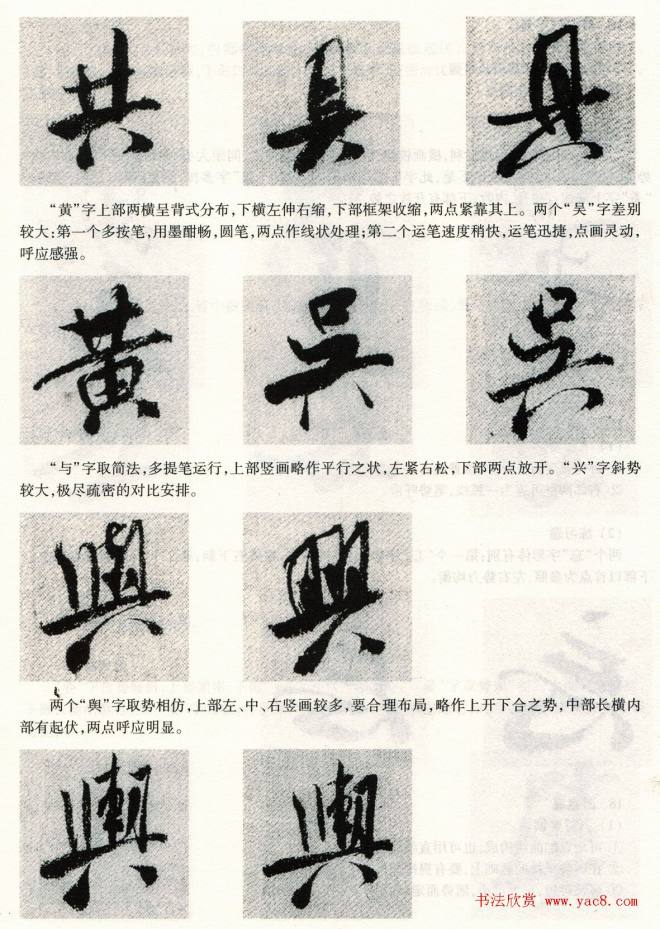 共 具 具
“黄”字上部两横呈背式分布，下横左伸右缩，下部框架收缩，两点紧靠其上。两个“吴”字差别
较大；第一个多按笔，用墨酣畅，圆笔，两点作线状处理；第二个运笔速度稍快，运笔迅捷，点画灵动，
呼应感强。
黄 吴 吴
“与”字取简法，多提笔运行，上部竖画略作平行之状，左紧右松，下部两点放开。“兴”字斜势
较大，极尽疏密的对比安排。
與 興
两个“舆”字取势相仿，上部左、中、右竖画较多，要合理布局，略作上开下合之势，中部长横内
部有起伏，两点呼应明显。
輿 輿
书法欣赏 www.yac8.com